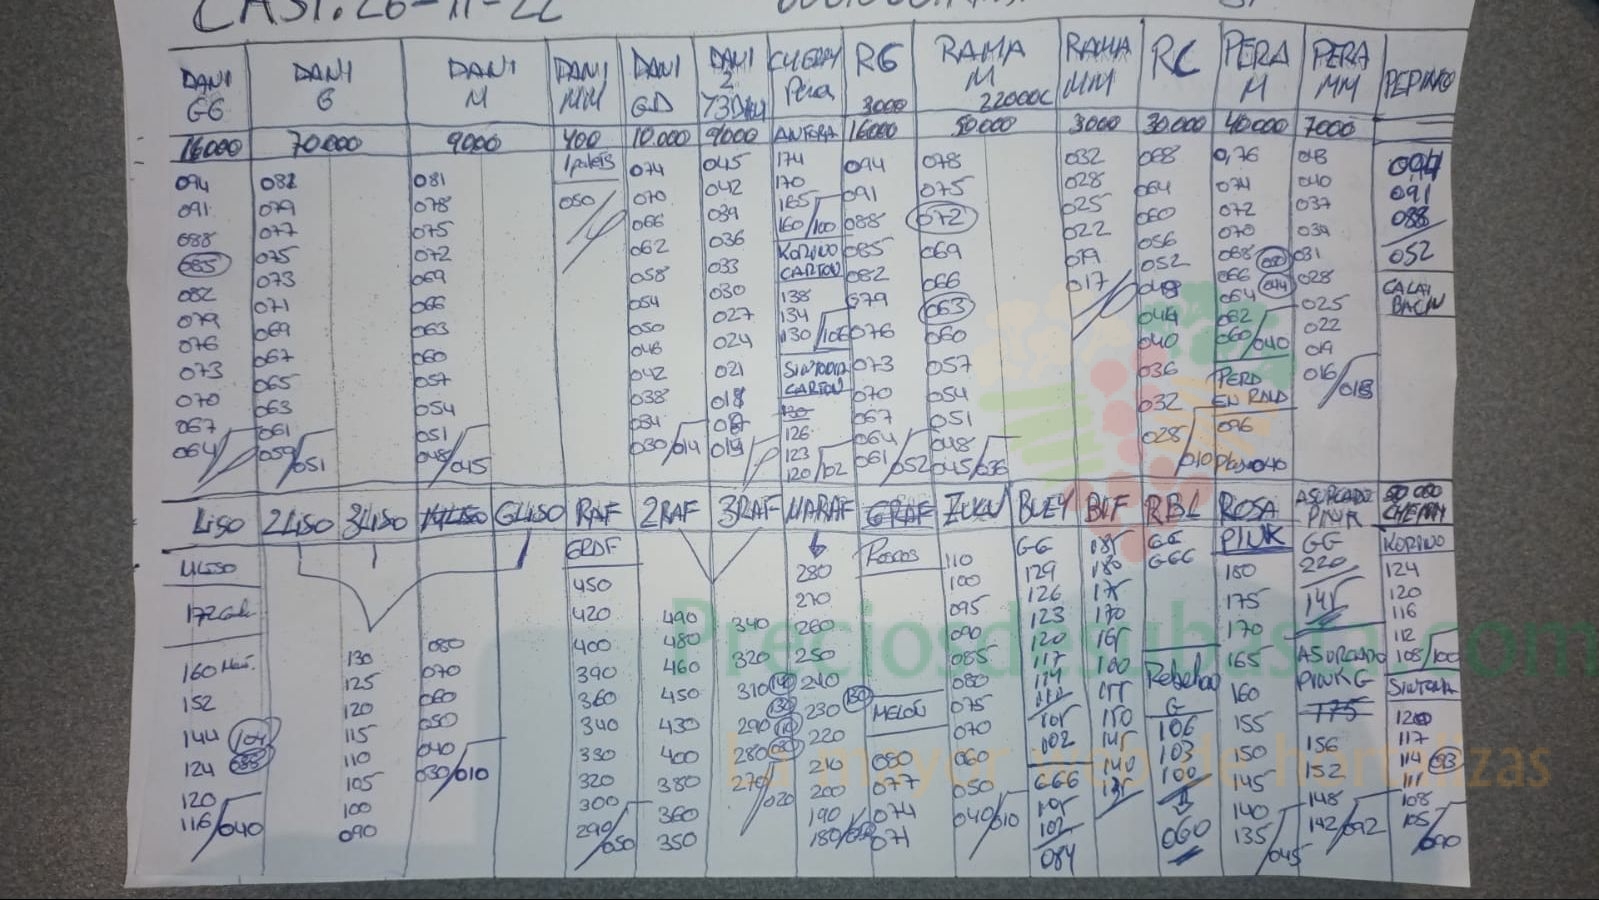 CASI. 26-11-22
DANI GG
DANI G
DANI M
DANI MM
DANI GD
DANI 2 73DKV
CHERRY Pera
RG 3000
RAMA M 22000C
RAMA MM
RC
PERA M
PERA MM
PEPINO
16000 70.000 9000 400 10.000 9000 ANTERA 16000 50.000 3000 30.000 40000 7000
094
091
088
085
082
079
076
073
070
067
064
082
079
077
075
073
071
069
067
065
063
061
059/051
081
078
075
072
069
066
063
060
057
054
051
048/045
1 palets
050
074
070
066
062
058
054
050
046
042
038
034
030/014
045
042
039
036
033
030
027
024
021
018
174
170
165
160/100
KORINO
CARTON
138
134
130/106
SINTONIA
CARTON
130
126
123
120/102
094
091
088
085
082
079
076
073
070
067
064
061/052
078
075
072
069
066
063
060
057
054
051
048
045/036
032
028
025
022
019
017
068
064
060
056
052
048
044
040
036
032
028
010
0,76
074
072
070
068
066 044
064
062
060/040
PERA
EN RAMA
096
040
040
037
034
031
028
025
022
019
016/013
094
091
088
052
CALA
BACIN
LISO 2LISO 3LISO 4LISO GLISO RAF 2RAF 3RAF MARAF GRAF ZULU BUEY BUF RBL ROSA PINK ASURCADO PINK 50 000 CHERRY
4LISO
172
160
152
144 104
124 085
120
116/040
130
125
120
115
110
105
100
090
080
070
060
050
040
030/010
GRAF
450
420
400
390
360
340
330
320
300
290/050
490
480
460
450
430
400
380
360
350
340
320
310
290
280
270/020
280
270
260
250
240
230
220
210
200
190
180
130
MELON
080
077
074
071
110
100
095
090
085
080
075
070
060
050
040/010
GG
129
126
123
120
117
114
110
105
102
GGG
105
102
084
185
180
175
170
165
160
155
150
145
140
135
GG
GGG
Rebeldon
G
106
103
100
060
180
175
170
165
160
155
150
145
140
135/045
GG
220
145
ASURCADO
PINK G
175
156
152
148
142/092
KORINO
124
120
116
112
108/100
SINTONIA
120
117
114 093
111
108
105/090
Preciosdesubasta.com
La mayor web de hortalizas